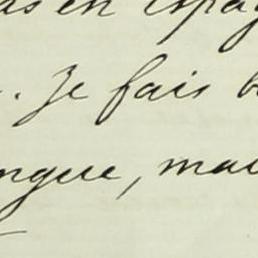 as en espag
. Je fais b
ngue, mai